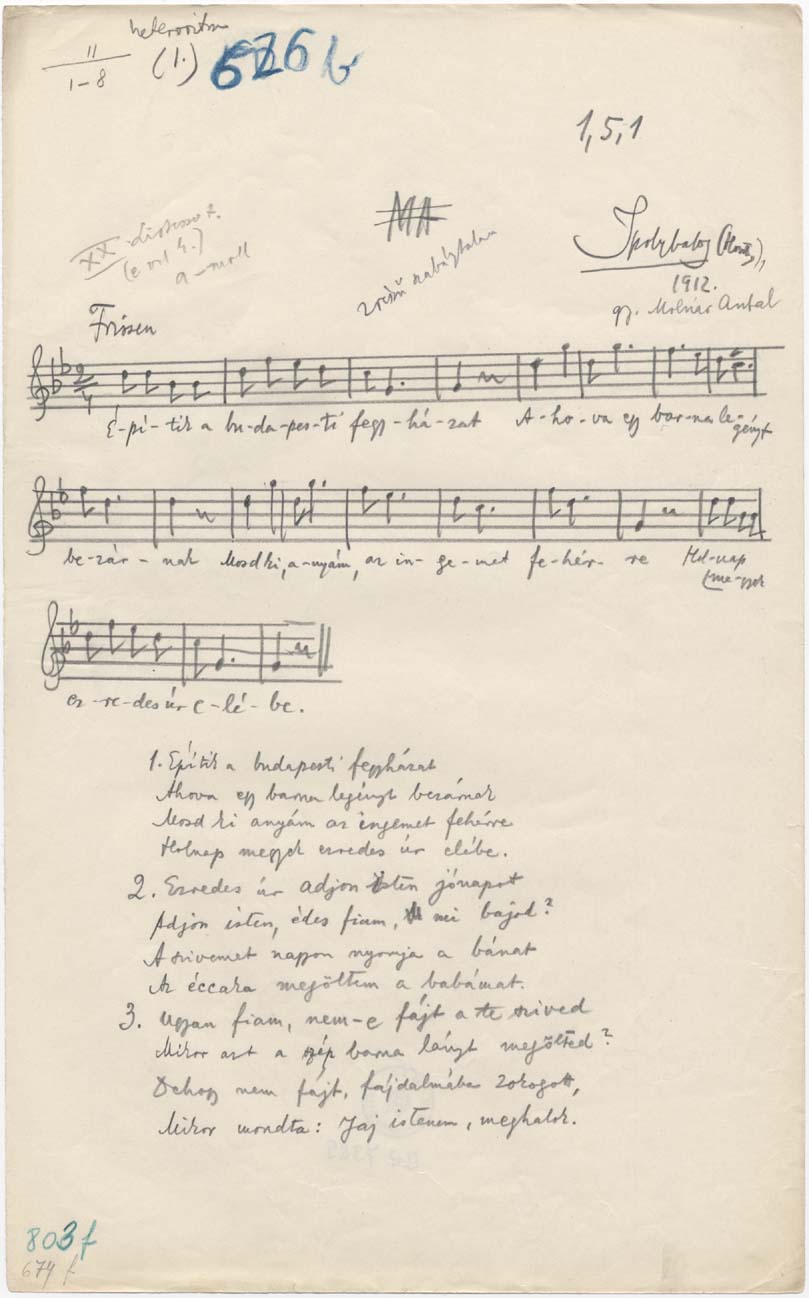 heteroritm
11
1-8
(1.) 626 b
1,5,1
MA
XX
(e vel 4.)
a-moll
Ipolybalog (Hont),
1912.
gy. Molnár Antal
Frissen
2
4
É-pí-tik a bu-da-pes-ti fegy-há-zat A-ho-va egy bar-na le-
gényt
be-zár-nak Mosd ki, a-nyám, az in-ge-met fe-hér-re Hol-nap
me-gyek
ez-re-des úr e-lé-be.
1. Építik a budapesti fegyházat
Ahova egy barna legényt bezárnak
Mosd ki anyám az ingemet fehérre
Holnap megyek ezredes úr elébe.
2. Ezredes úr adjon isten jónapot
Adjon isten, édes fiam, mi bajod?
A szivemet nagyon nyomja a bánat
Az éccaka megöltem a babámat.
3. Ugyan fiam, nem-e fájt a te szived
Mikor azt a szép barna lányt megölted?
Dehogy nem fájt, fájdalmába zokogott,
Mikor mondta: Jaj istenem, meghalok.
803 f
674 f